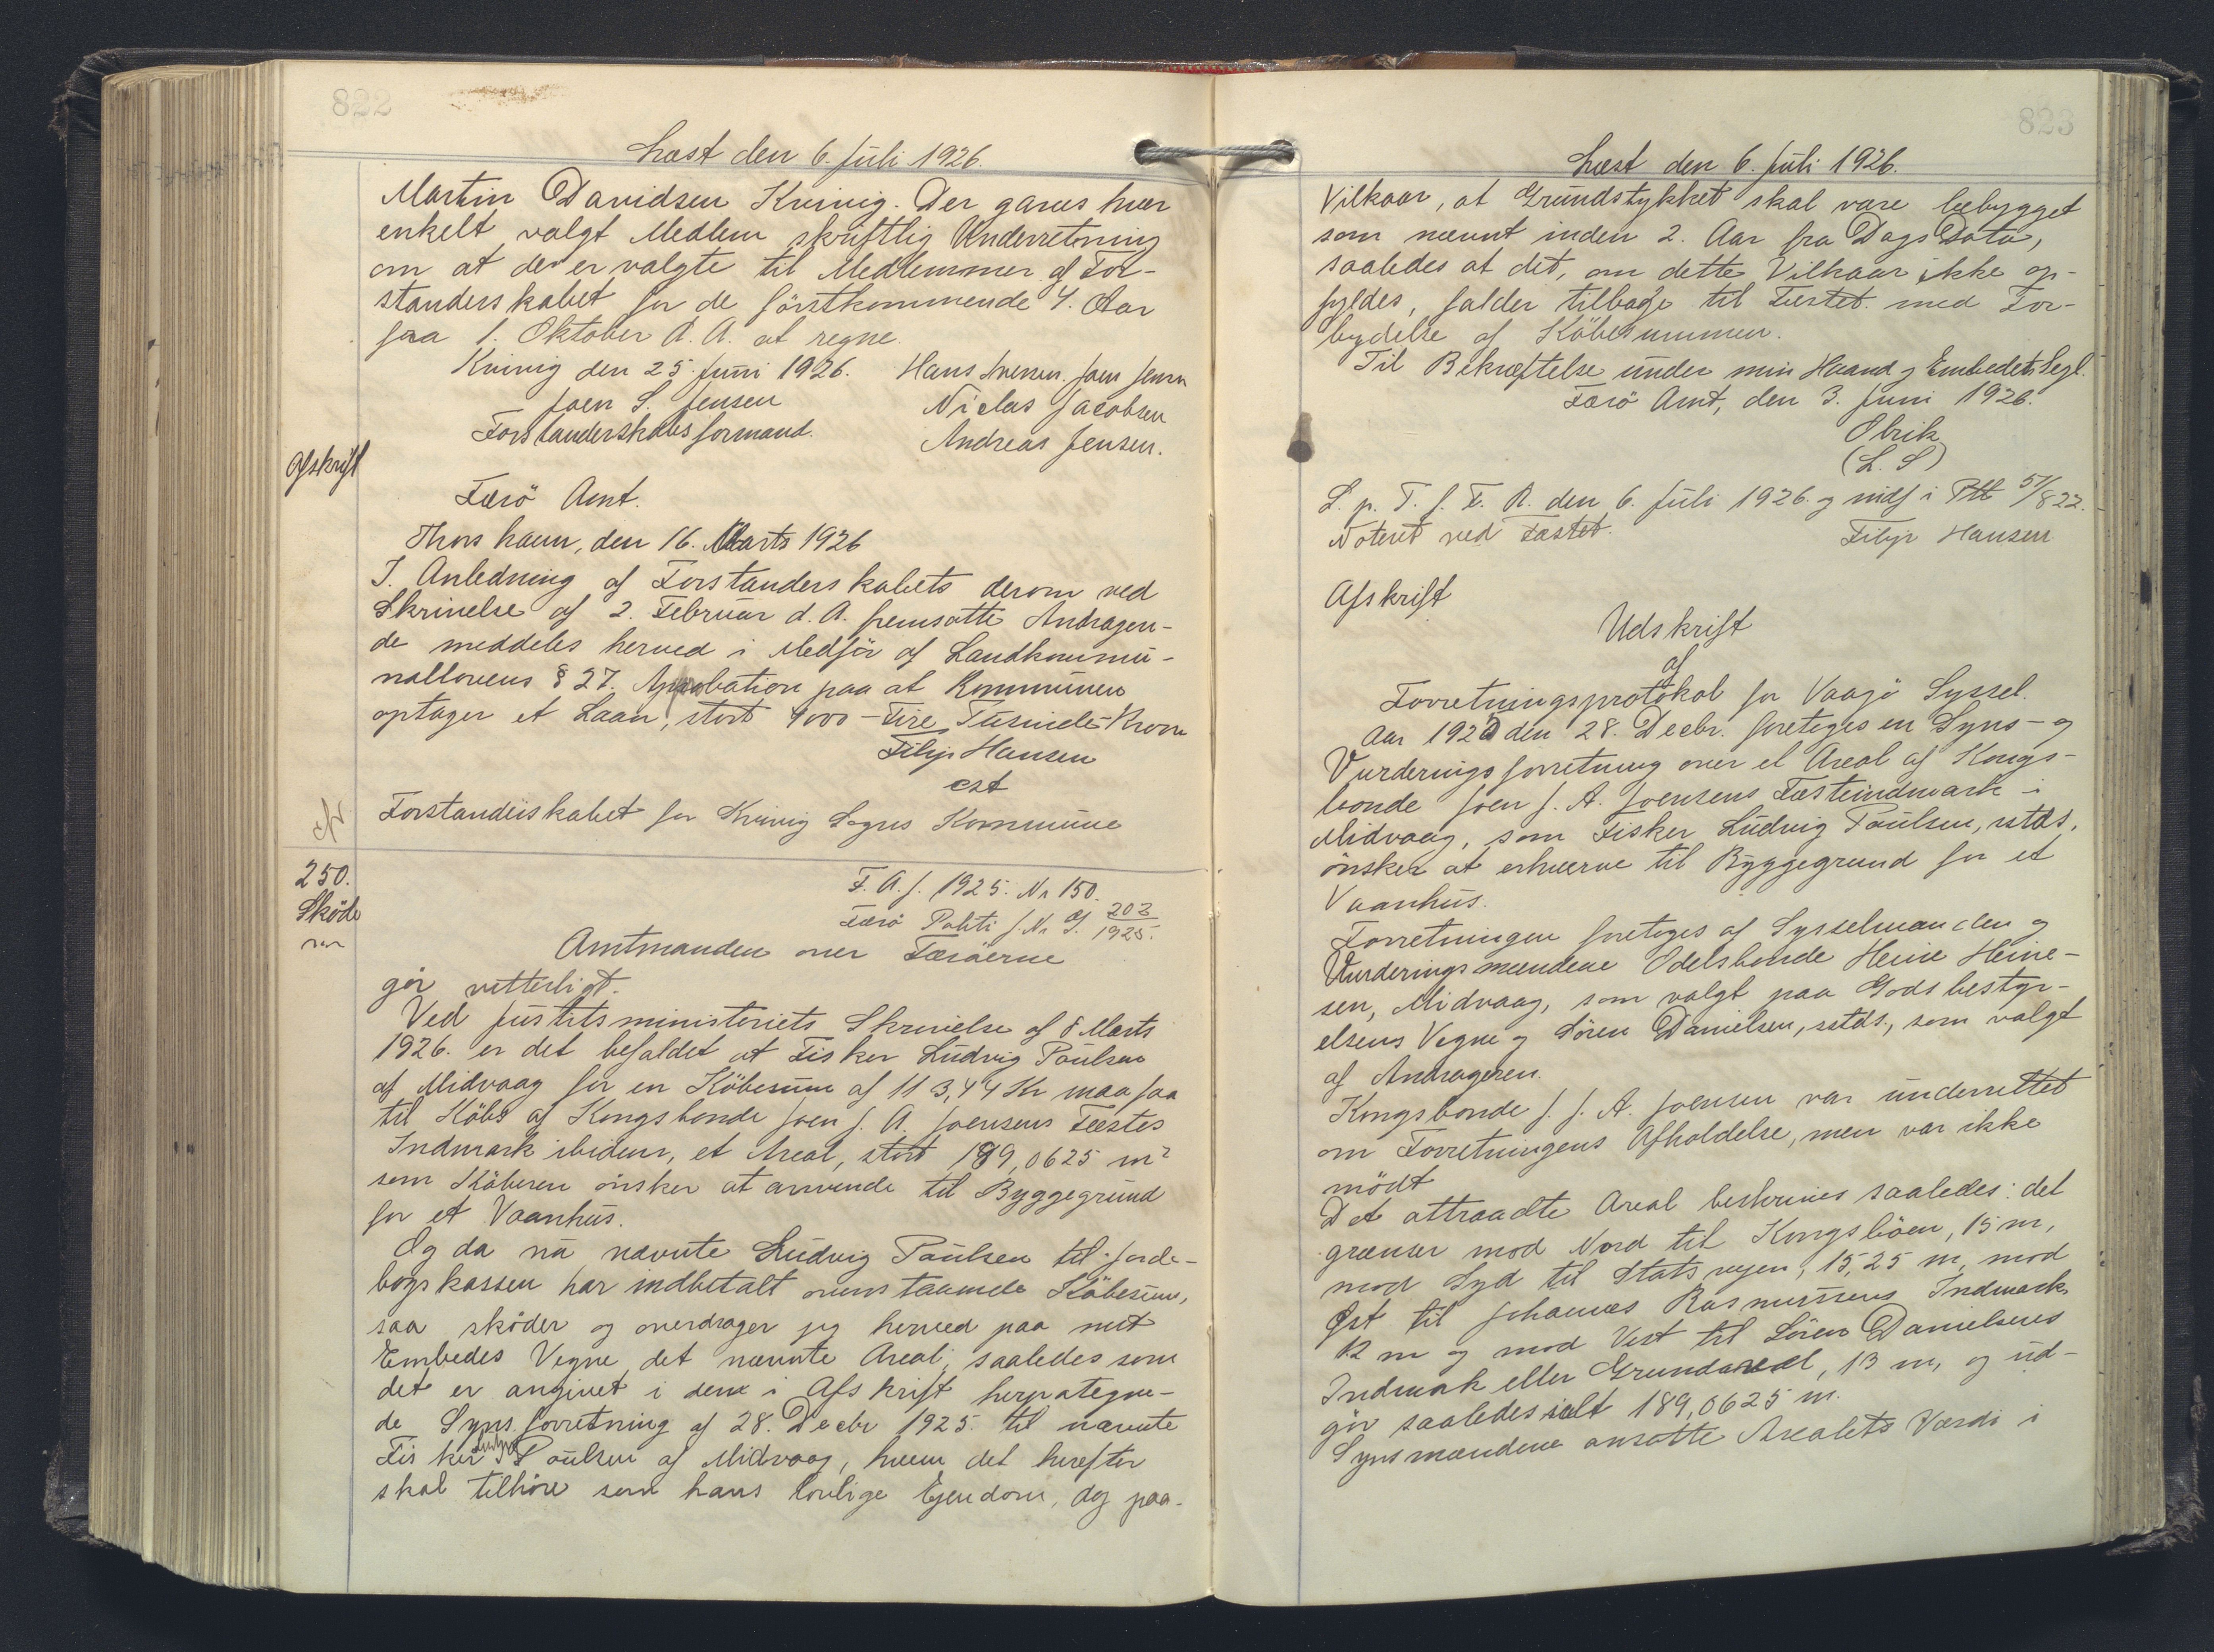 822
Læst den 6. Juli 1926.
Martin Davidsen Kvivig. Der gaves hver
enkelt valgt Medlem skriftlig Underretning
om at de er valgte til Medlemmer af For-
standerskabet for de förstkommende 4. Aar
fra 1. Oktober d. A. at regne.
Kvivig den 25. Juni 1926. Hans Iversen. Joen Jensen
Joen S. Jensen Niclas Jacobsen
Forstanderskabsformand. Andreas Jensen.
Afskrift
Færö Amt.
Thorshavn, den 16. Marts 1926
I. Anledning af Forstanderskabets derom ved
Skrivelse af 2. Februar d. A. fremsatte Andragen-
de meddeles herved i Medför af Landkommu-
nallovens § 27. Approbation paa at Kommunen
optager et Laan, stort 4000 - Fire Tusinde - Kroner
Filip Hansen
cst
Forstanderskabet for Kvivig Sogns Kommune
250.
Sköde
F. A. J. 1925. Nr 150.
Færö Politi J. Nr S. 202/1925.
Amtmanden over Færöerne
gör vitterligt.
Ved Justitsministeriets Skrivelse af 8 Marts
1926. er det befaldet at Fisker Ludvig Poulsen
af Midvaag for en Köbesum af 113,44 Kr maa faa
til Köbs af Kongsbonde Joen J. A. Joensens Fæstes
Indmark ibidem, et Areal, stort 189,0625 m²
som Köberen önsker at anvende til Byggegrund
for et Vaanhus.
Og da nu nævnte Ludvig Poulsen til Jorde-
bogskassen har indbetalt ovenstaaende Köbesum,
saa sköder og overdrager jeg herved paa mit
Embedes Vegne det nævnte Areal, saaledes som
det er angivet i den i Afskrift herpaategne-
de Synsforretning af 28. Decbr 1925. til nævnte
Fisker Ludvig Poulsen af Midvaag, hvem det herefter
skal tilhöre som hans lovlige Ejendom, dog paa
823
Læst den 6. Juli 1926.
Vilkaar, at Grundstykket skal være bebygget
som nævnt inden 2. Aar fra Dags Dato,
saaledes at det, om dette Vilkaar ikke op-
fyldes, falder tilbage til Fæstet med For-
brydelse af Köbesummen.
Til Bekræftelse under min Haand og Embedets Segl.
Færö Amt, den 3. Juni 1926.
Obrik
(L. S)
L. p. T. f. F. R. den 6. Juli 1926. og indf i Ptk 51/822.
Noteret ved Fæstet. Filip Hansen
Afskrift
Udskrift
af
Forretningsprotokol for Vaagö Syssel.
Aar 1925 den 28. Decbr. foretoges en Syns- og
Vurderingsforretning over et Areal af Kongs-
bonde Joen J. A. Joensens Fæsteindmark i
Midvaag, som Fisker Ludvig Poulsen, sstds,
önsker at erhverve til Byggegrund for et
Vaanhus.
Forretningen foretoges af Sysselmanden og
Vurderingsmændene Odelsbonde Heine Heine-
sen, Midvaag, som valgt paa Godsbestyr-
elsens Vegne og Sören Danielsen, sstds., som valgt
af Andrageren.
Kongsbonde J. J. A. Joensen var underrettet
om Forretningens Afholdelse, men var ikke
mödt
Det attraadte Areal beskrives saaledes: det
grænser mod Nord til Kongsböen, 15 m,
mod Syd til Statsvejen, 15,25 m, mod
Øst til Johannes Rasmussens Indmark
12 m og mod Vest til Sören Danielsens
Indmark eller Grundareal, 13 m, og ud-
gör saaledes ialt 189,0625 m.
Synsmændene ansatte Arealets Værdi i